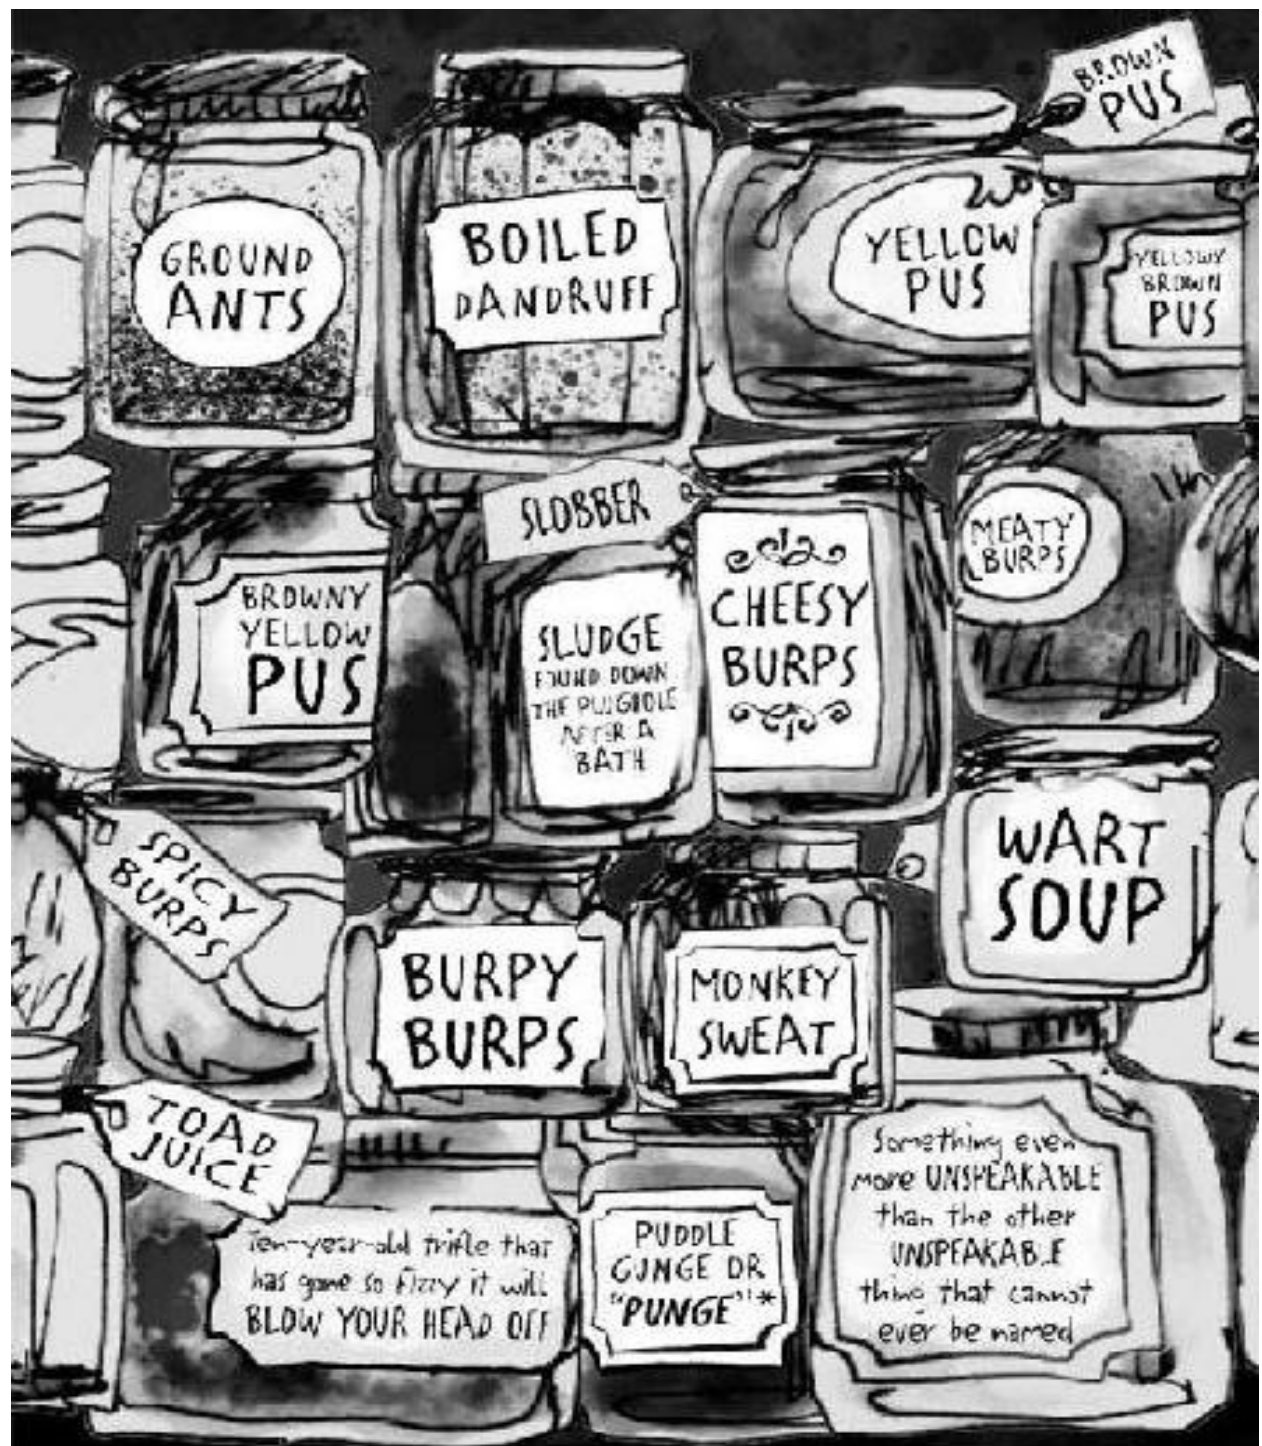 BROWN
PUS
GROUND
ANTS
BOILED
DANDRUFF
YELLOW
PUS
YELLOWY
BROWN
PUS
BROWNY
YELLOW
PUS
SLOBBER
SLUDGE
FOUND DOWN
THE PLUGHOLE
AFTER A
BATH
CHEESY
BURPS
MEATY
BURPS
SPICY
BURPS
BURPY
BURPS
MONKEY
SWEAT
WART
SOUP
TOAD
JUICE
Ten-year-old trifle that
has gone so fizzy it will
BLOW YOUR HEAD OFF
PUDDLE
GUNGE OR
"PUNGE"!*
Something even
more UNSPEAKABLE
than the other
UNSPEAKABLE
thing that cannot
ever be named